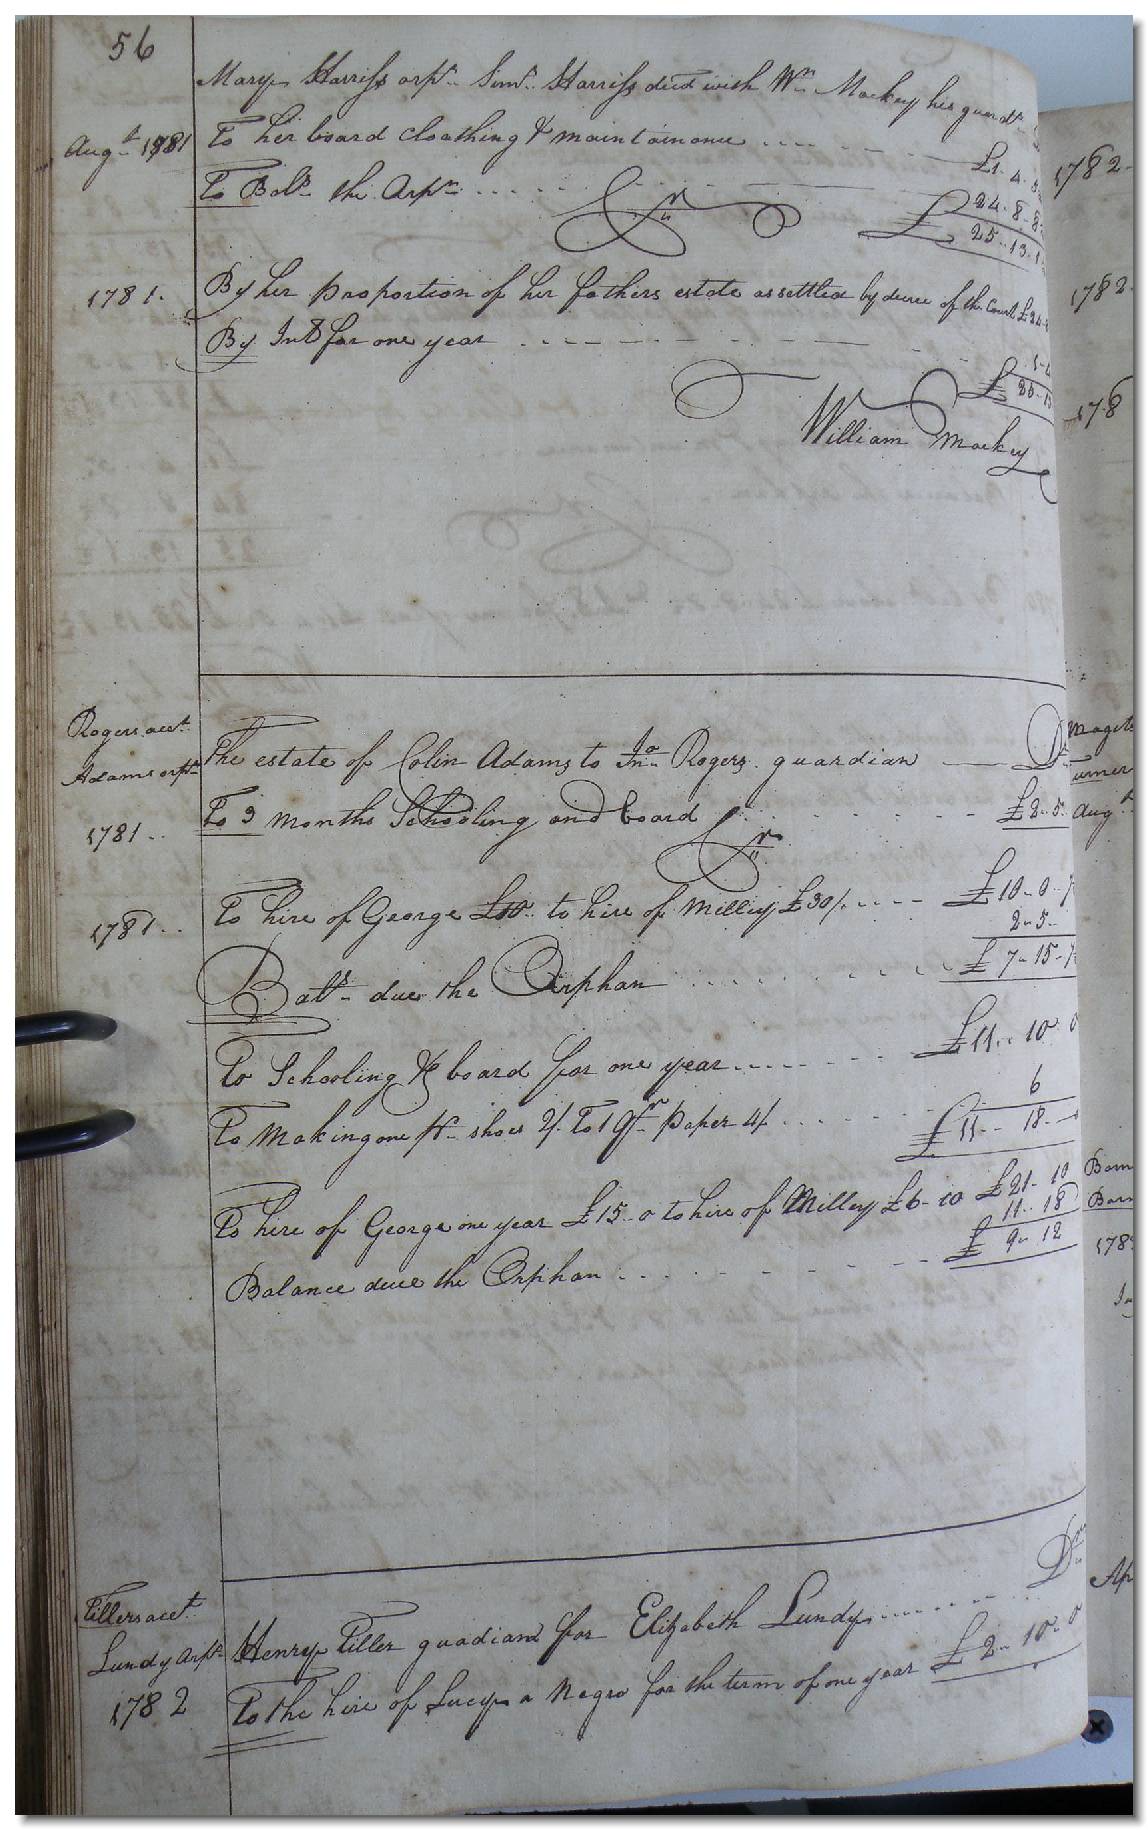 56
Mary Harriss orpn. Simn. Harriss decd with Wm. Mackey her guardn.
Augt. 1781 To her board cloathing & maintainance £1. 4. 5
To Bale. the Orpn. 24. 8. 8
Cr. £ 25. 13. 1
1781. By her proportion of her fathers estate as settled by decree of the Court £24. 8
By Int. for one year 1. 4
£ 25. 13
William Mackey
Rogers acct.
Adams orpn. The estate of Colin Adams to Jno. Rogers guardian Dr.
1781.. To 3 months Schooling and board £2.. 5
Cr.
1781.. To hire of George £10.. to hire of Milley £30/. £10.. 0..
2.. 5..
Bale. due the Orphan £ 7.. 15..
To Schooling & board for one year £11.. 10 0
To making one pr. shoes 2/. To 1 Qr. paper 4/. 6
£11.. 18..
To hire of George one year £15.. 0 to hire of Milley £6.. 10 £21.. 10
11.. 18
Balance due the Orphan £ 9.. 12
Tillers acct. Dr.
Lundy Orpn. Henry Tiller guadian for Elizabeth Lundy
1782 To the hire of Lucy a Negro for the term of one year £2.. 10.. 0
1782
1782
178
Augt.
178
Ap